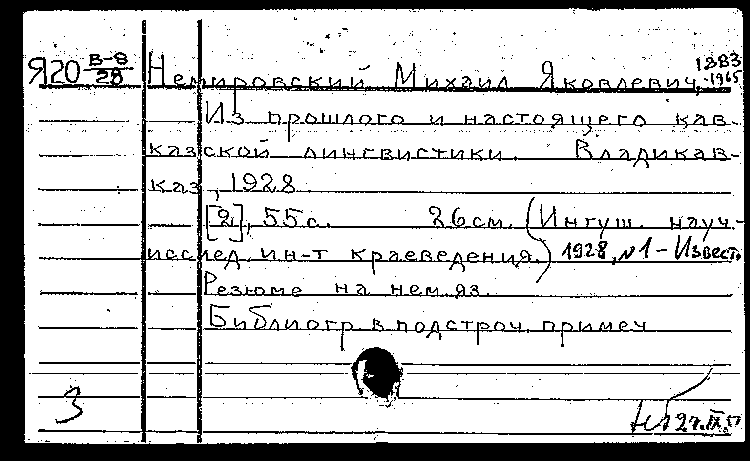 Я20 В-8/28 Немировский Михаил Яковлевич, 1883-1965
Из прошлого и настоящего кав-
казской лингвистики. Владикав-
каз, 1928.
[2], 55 с. 26 см. (Ингуш. науч.-
исслед. ин-т краеведения.) 1928, №1 - Известь
Резюме на нем. яз.
Библиогр. в подстроч. примеч.
3